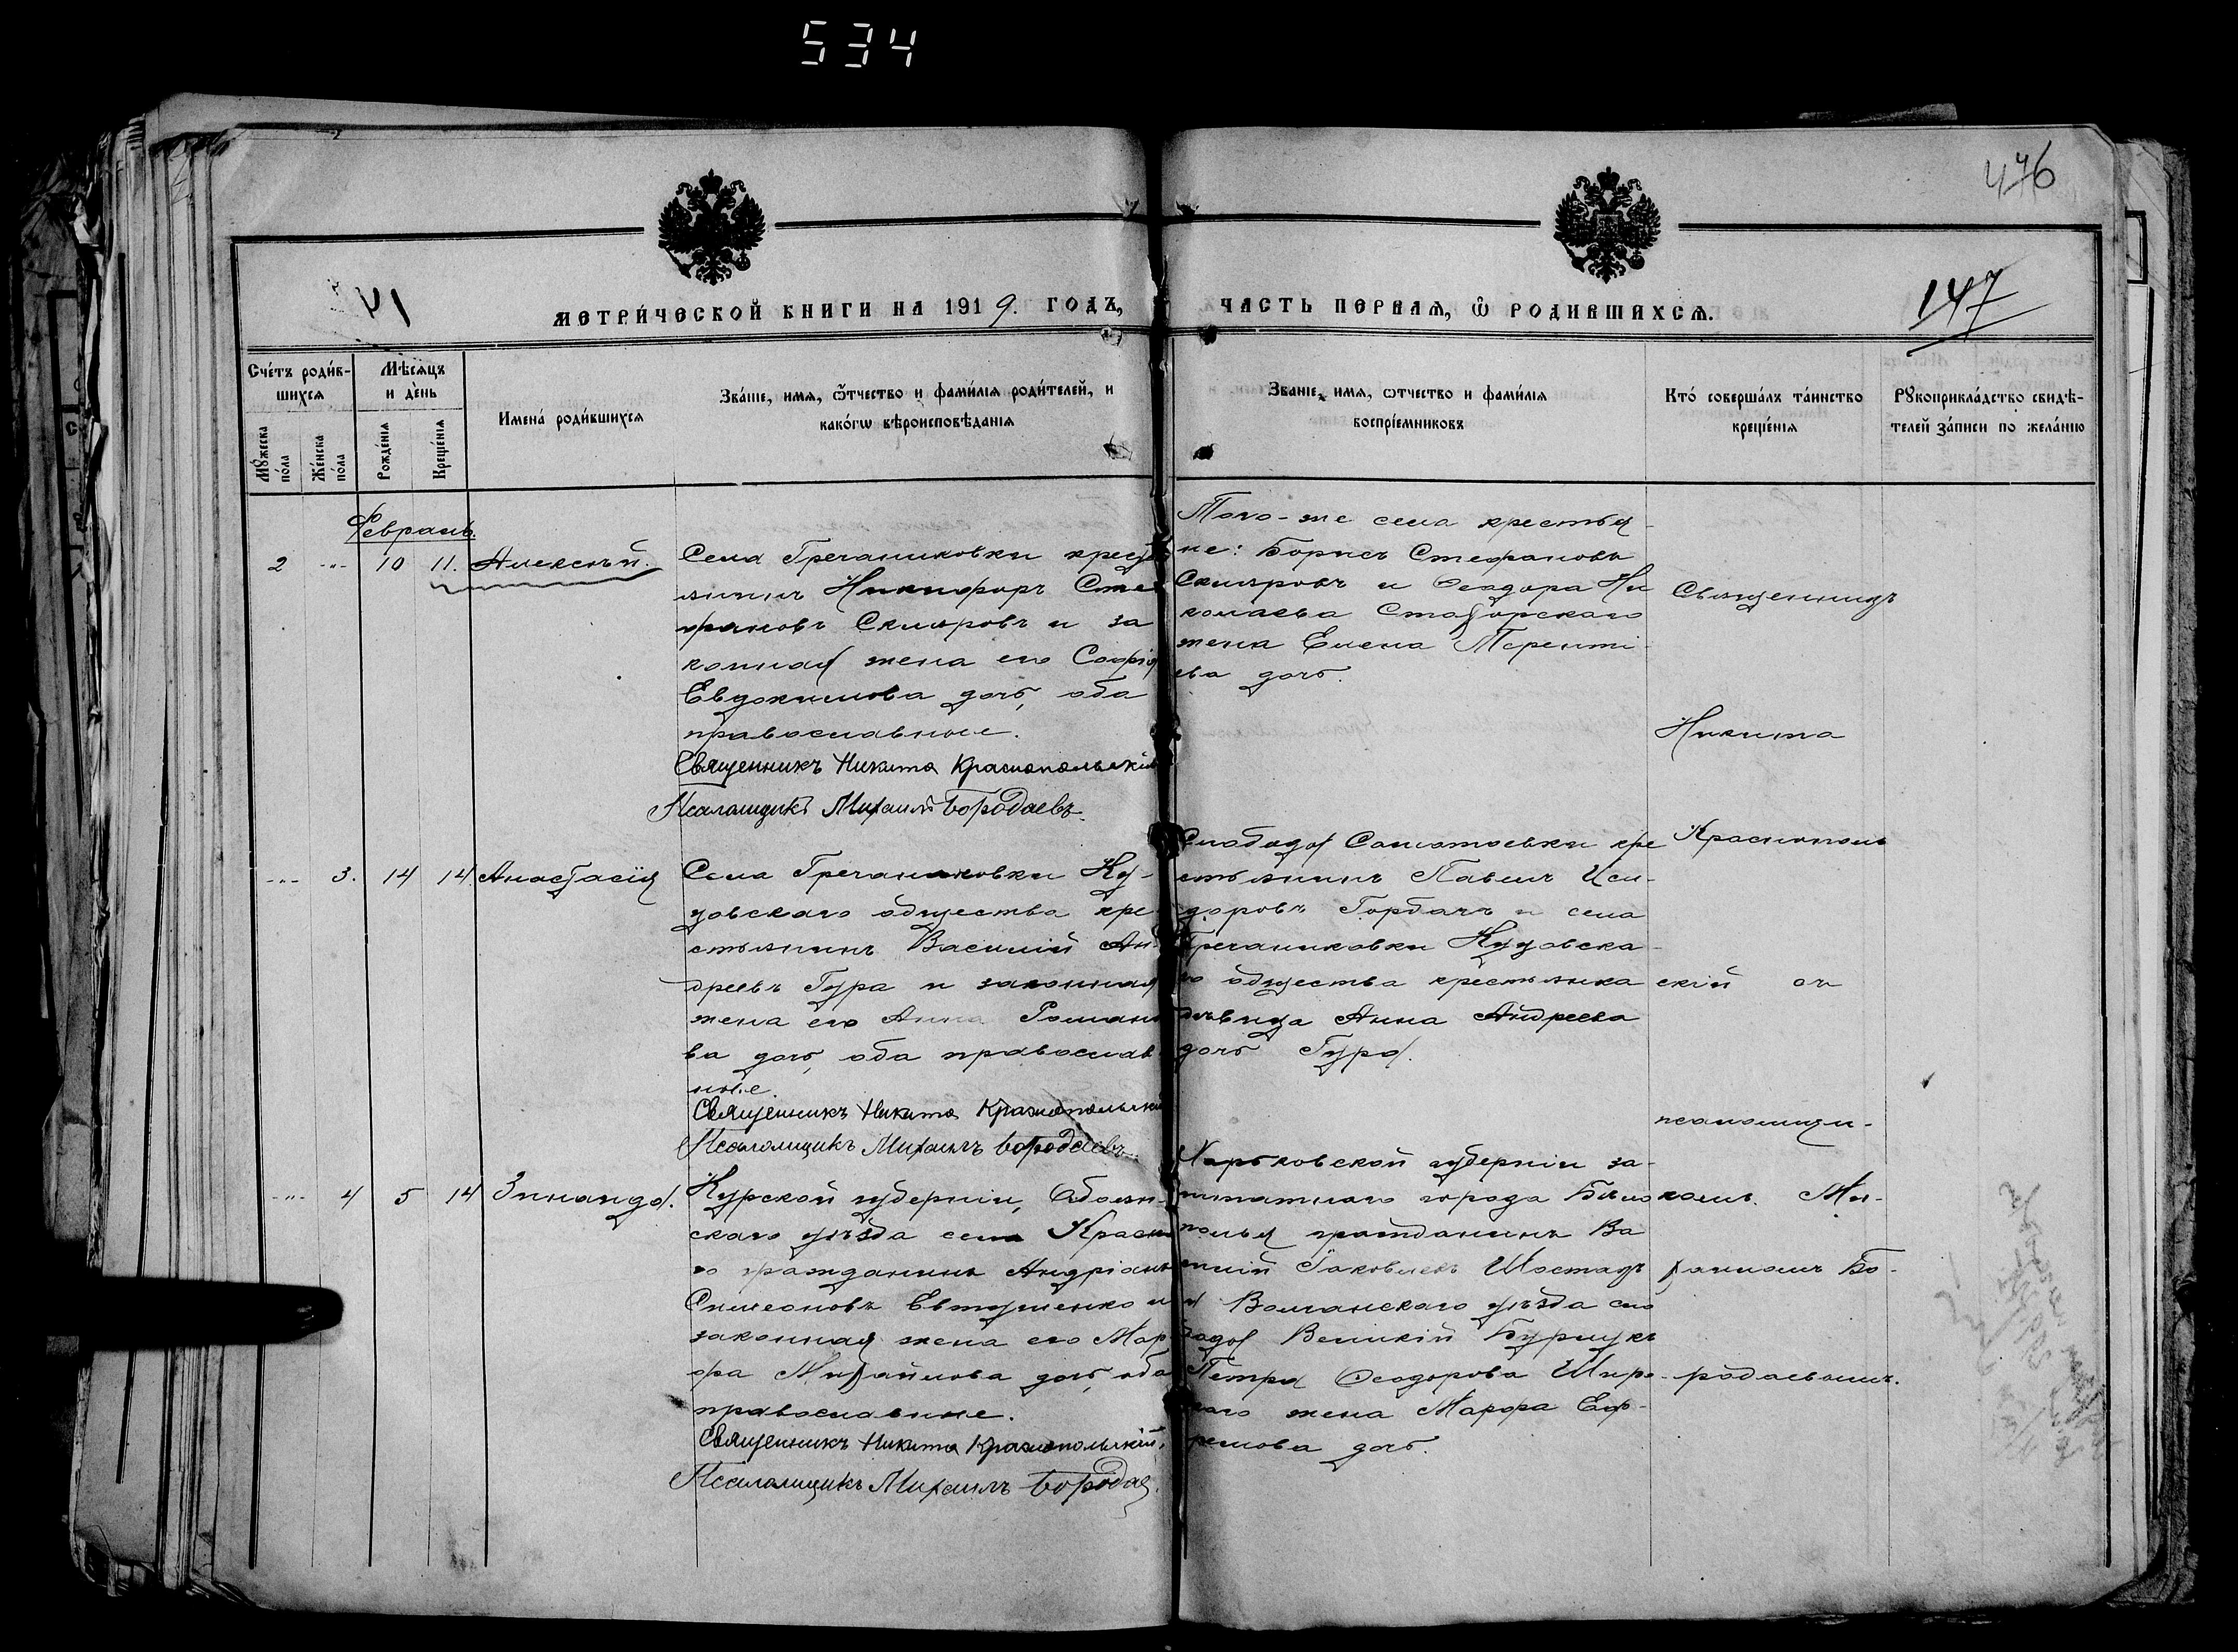 534
476
41
147
МЕТРИ́ЧЕСКОЙ КНИГИ НА 1919. ГОДЪ,
ЧАСТЬ ПЕРВАЯ, Ѡ РОДИВШИХСЯ.
Сче́тъ роди́в-
шихся
Мꙋ́жеска
по́ла
Же́нска
по́ла
Мѣ́сяцъ
и де́нь
Рожде́нїя
Креще́нїя
Имена́ роди́вшихся
Зва́нїе, имя, ѻ҆́тчество и фами́лїя роди́телей, и
како́гѡ вѣроисповѣ́данїя
Званїе, имя, ѡтчество и фами́лїя
воспрїемниковъ
Кто́ соверша́лъ та́инство
креще́нїя
Рꙋкоприкла́дство свидѣ́-
телей за́писи по жела́нїю
Февраль.
2 -"- 10 11. Алексѣй.
Села Гречаниковки кресть
янинъ Никифоръ Сте
фановъ Скляровъ и за
конная жена его Софія
Евдокимова дочь, оба
православные.
Священникъ Никита Краснопольскій
Псаломщикъ Михаилъ Бородаевъ.
Того-же села крестья-
не: Борисъ Стефановъ
Скляровъ и Ѳеодора Ни
колаева
жена Елена Терентi-
ева дочь.
-"- 3. 14 14 Анастасія
Села Гречаниковки
общества кре
стьянинъ Василій Ан-
дреевъ Гура и законная
жена его Анна Романо
ва дочь, оба православ
ные.
Священникъ Никита Краснопольскій
Псаломщикъ Михаилъ Бородаевъ.
Слободы кре
стьянинъ Павелъ Иси-
доровъ Горбачъ и села
Гречаниковки
го общества крестьянка
дѣвица Анна Андреева
дочь Гура.
-"- 4 5 14 Зинаида.
Курской губерніи, Обоян-
скаго уѣзда села Красна
го гражданинъ Андріанъ
Симеоновъ Евтушенко и
законная жена его Мар
фа Михайлова дочь, оба
православные.
Священникъ Никита Краснопольскій.
Псаломщикъ Михаилъ Бородаев
Харьковской губерніи за-
штатнаго города Бѣло
полья гражданинъ Ва
силій Іаковлевъ Шостакъ
и Волчанскаго уѣзда сло
боды Великій Бурлукъ
Петра Ѳеодорова Широ-
каго жена Марфа Еф-
ремова дочь.
Священникъ
Никита
Краснополь
скій съ
псаломщи-
комъ Ми-
хаиломъ Бо-
родаевымъ.